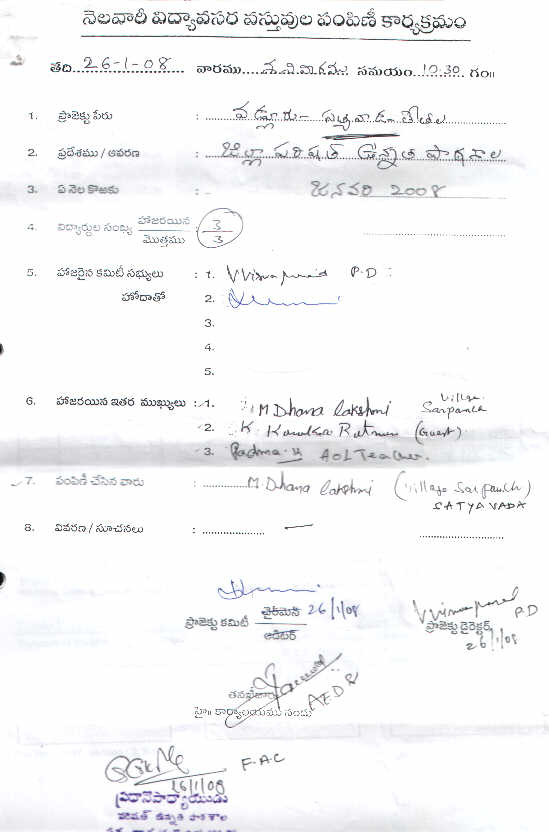 నెలవారీ విద్యావసర వస్తువుల పంపిణీ కార్యక్రమం
తేది 26-1-08 వారము శనివారము సమయం 10.30 గం॥
1. ప్రాజెక్టు పేరు : వడ్లూరు - సత్యవాడ
2. ప్రదేశము / ఆవరణ : జిల్లా పరిషత్ ఉన్నత పాఠశాల
3. ఏ నెల కొఱకు : జనవరి 2008
4. విద్యార్థుల సంఖ్య హాజరయిన / మొత్తము : 3 / 3
5. హాజరైన కమిటీ సభ్యులు : 1. P.D
హోదాతో 2.
3.
4.
5.
6. హాజరయిన ఇతర ముఖ్యులు : 1. M Dhana lakshmi Village Sarpanch
2. K. Kanaka Ratnam (Guest).
3. Padma. K AOL Teacher.
7. పంపిణీ చేసిన వారు : M. Dhana lakshmi (Village Sarpanch)
SATYAVADA
8. వివరణ / సూచనలు : —
ప్రాజెక్టు కమిటీ ఛైర్మెన్ 26/1/08
ఆడిటర్
P.D
ప్రాజెక్టు డైరెక్టర్
26/1/08
తనిఖీదారు
హై॥ కార్యాలయము నందు
F.A.C
26/1/08
ప్రధానోపాధ్యాయుడు
పరిషత్ ఉన్నత పాఠశాల